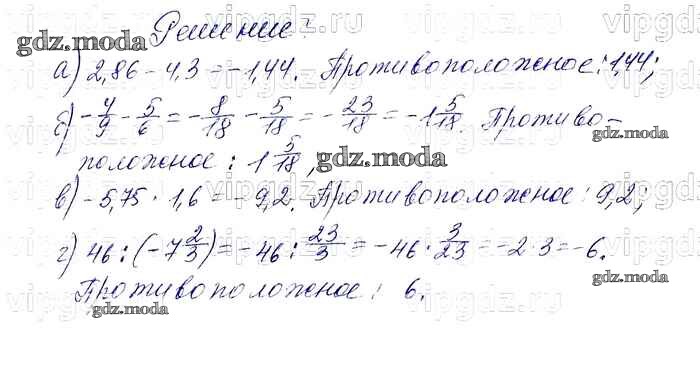 Решение:
а) 2,86 - 4,3 = -1,44. Противоположное: 1,44;
б) -4/9 - 5/6 = -8/18 - 5/18 = -23/18 = -1 5/18. Противо-
положное: 1 5/18,
в) -5,75 · 1,6 = -9,2. Противоположное: 9,2;
г) 46 : (-7 2/3) = -46 : 23/3 = -46 · 3/23 = -2·3 = -6.
Противоположное: 6.
gdz.moda
gdz.moda
gdz.moda
gdz.moda
gdz.moda
gdz.moda
vipgdz.ru
vipgdz.ru
vipgdz.ru
vipgdz.ru